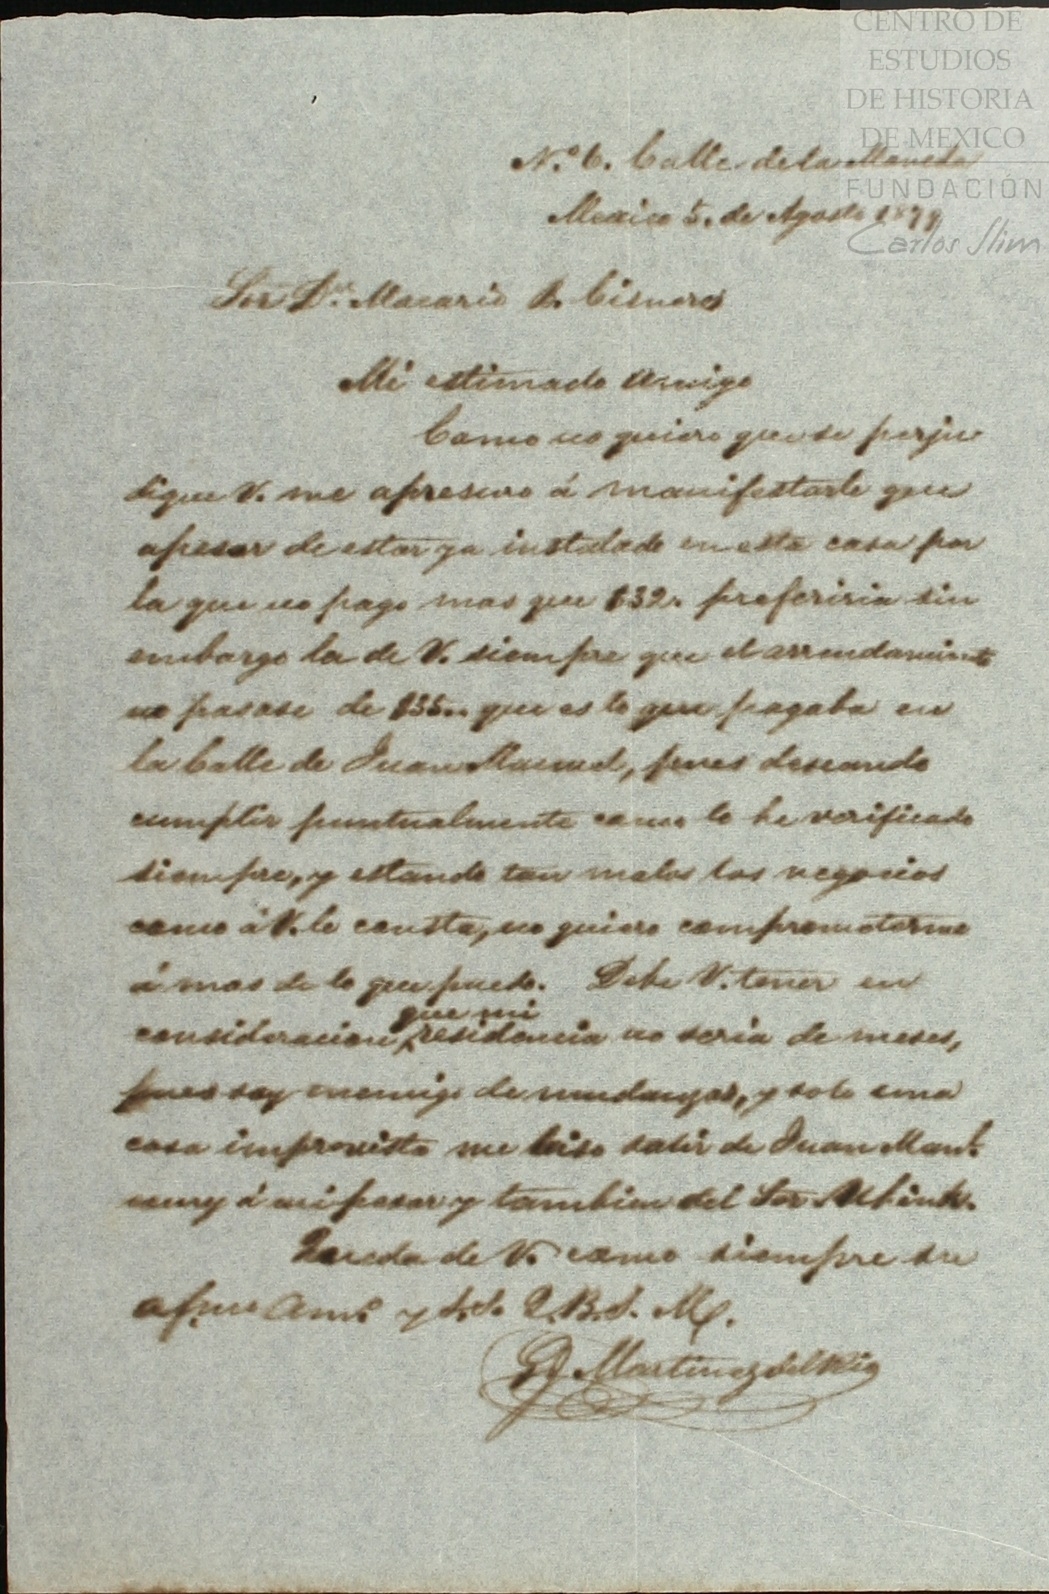 CENTRO DE
ESTUDIOS
DE HISTORIA
DE MEXICO
FUNDACIÓN
Carlos Slim
N.º 6. Calle de la Moneda
Mexico 5. de Agosto 1879
Sor Dn. Macario B. Cisneros
Mi estimado amigo
Como no quiero que se perju
dique V. me apresuro á manifestarle que
apesar de estar ya instalado en esta casa por
la que no pago mas que $32. preferiria sin
embargo la de V. siempre que el arrendamiento
no pasase de $35.. que es lo que pagaba en
la Calle de Juan Manuel, pues deseando
cumplir puntualmente como lo he verificado
siempre, y estando tan malos los negocios
como á V. le consta, no quiero comprometerme
á mas de lo que puedo. Debe V. tener en
consideracion que mi residencia no seria de meses,
pues soy enemigo de mudanzas, y solo una
cosa imprevista me hiso salir de Juan Manl.
muy á mi pesar y tambien del Sor
Queda de V. como siempre su
afmo Amo. y S.S. Q.B.S.M.
Martinez del Rio